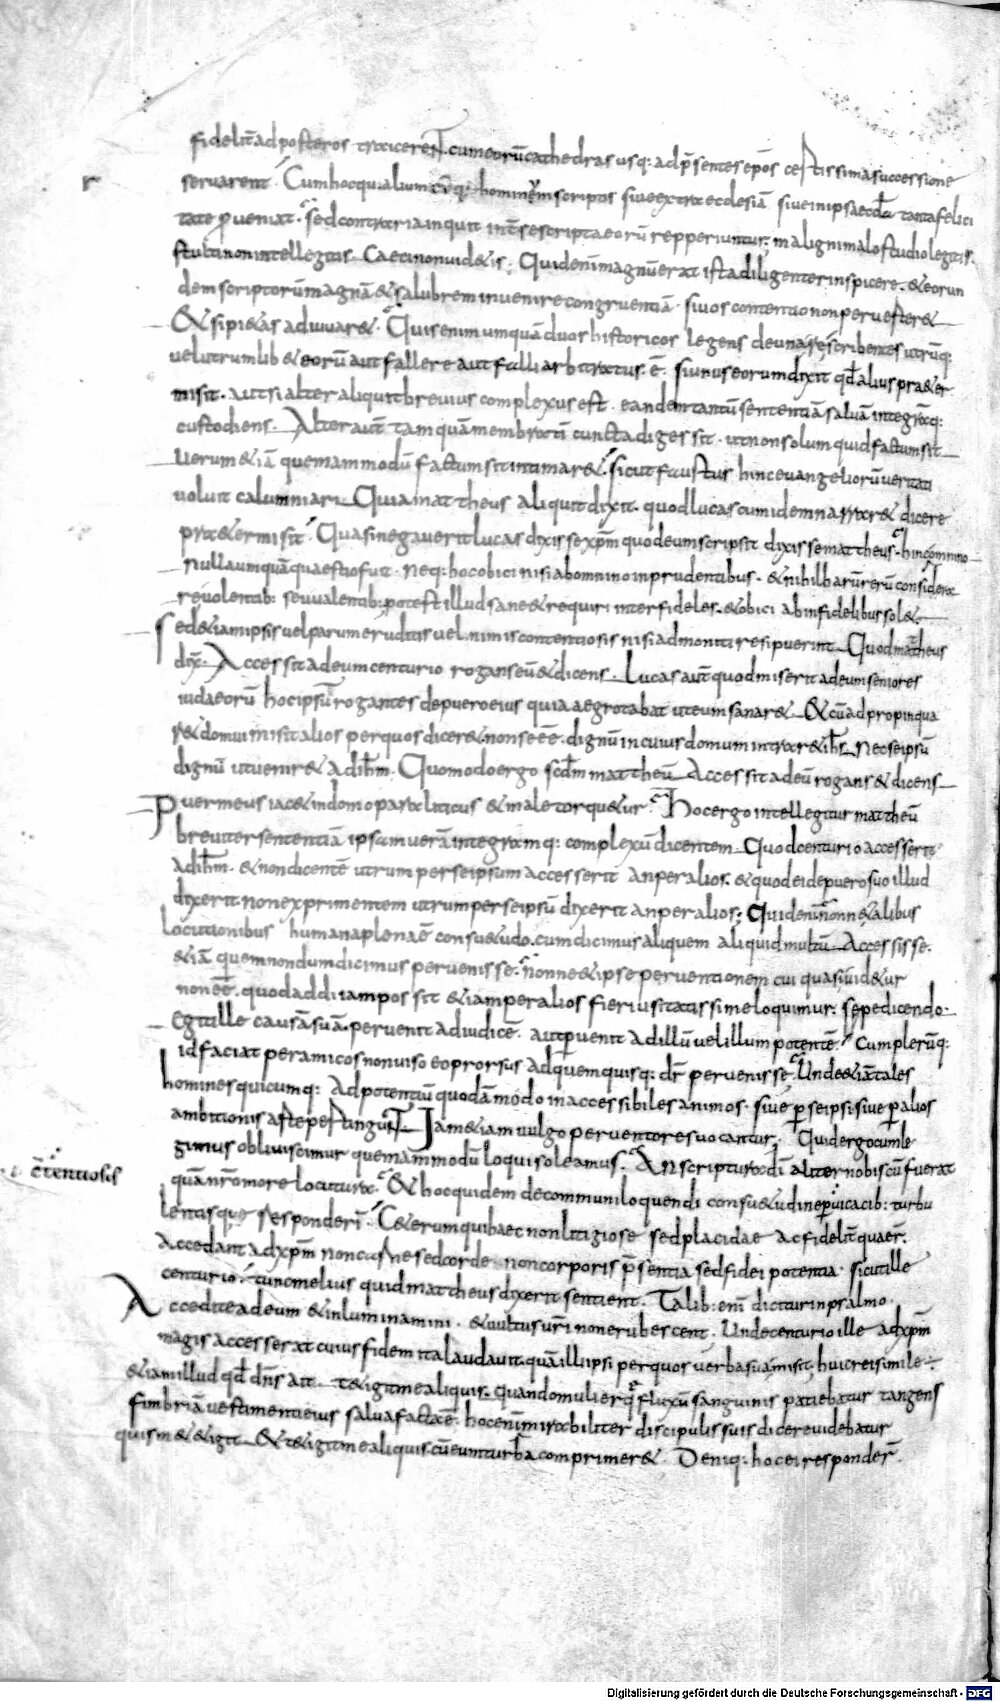 fidelit̄ ad posteros traiceren̄t. cum eorū cathedras usq: ad p̄sentes ep̄os certissima successione
servarent. Cum hoc qualium cūq: hominum scriptis sive extra ecclesiā sive in ipsa eccla tanta felici
tate proveniat. sed contraria inquit int̄ se scripta eorū repperiuntur; maligni malo studio legitis.
stulti non intellegitis. Caeci non vid&is; Quid enī magnū erat ista diligenter inspicere. & eorun
dem scriptorū magnā & salubrem invenire congruentiā. si vos contentio non perverter&
& si pi&as adiuvar&. Quis enim umquā duos historicos legens de una re scribentes utrūq:
vel utrumlib& eorū aut fallere aut falli arbitratus. ē. si unus eorum dixit qd̄ alius pra&er
misit. aut si alter aliquit brevius complexus est. eandem tantū sententiā salvā integrāq:
custodiens. Alter aut̄ tamquam membratī cuncta digessit. ut non solum quid factum sit
verum &iā quemammodū factum sit intimar&. sicut faustus hinc evangeliorū veritati
voluit calumniari. Quia mattheus aliquit dixit. quod lucas cum idem narrar& dicere
pra&ermisit. Quasi negaverit lucas dixisse xp̄m quod eum scripsit dixisse mattheus. hinc omnino
nulla umquā quaestio fuit. Neq: hoc obici nisi ab omnino inprudentibus. & nihil harū rerū considera
re volentib: seu valentib: potest illud sane & requiri inter fideles. & obici ab infidelibus sol&.
sed &iam ipsis vel parum eruditis vel nimis contentiosis nisi admoniti resipuerint. Quod mattheus
dix̄. Accessit ad eum centurio rogans eū & dicens. Lucas aut̄ quod miserit ad eum seniores
iudaeorū hoc ipsū rogantes de puero eius quia aegrotabat ut eum sanar&. & cū adpropinqua
r& domui misit alios per quos dicer& non se ēē. dignū in cuius domum intrar& ih̄s. Nec se ipsū
dignū ut venir& ad ih̄m. Quomodo ergo scdm̄ mattheū Accessit ad eū rogans & dicens
Puer meus iac& in domo paraliticus & male torqu&ur. Hoc ergo intellegitur mattheū
breviter sententiā ipsam verā integramq: complexū dicentem Quod centurio accesserit
ad ih̄m. & non dicentē utrum per se ipsum accesserit an per alios. & quod ei de puero suo illud
dixerit non exprimentem utrum per se ipsū dixerit an per alios; Quid enī nonne talibus
locutionibus humana plena ē consu&udo. cum dicimus aliquem aliquid multū Accessisse.
&iā quem nondum dicimus pervenisse. nonne & ipse perventionem cui quasi vid&ur
non ēē. quod addi iam possit &iam per alios fieri usitatissime loquimur. sepe dicendo.
egit ille causā suā. pervenit ad iudicē. aut pervenit ad illū vel illum potentē. Cum plerūq:
id faciat per amicos non viso eo prorsus ad quem quisq: dr̄ pervenisse. Unde &iā tales
homines quicumq: Ad potentiū quodā modo inaccessibiles animos. sive per se ipsi. sive per alios
ambitionis arte pertingunt. Iam &iam vulgo perventores vocantur. Quid ergo cum le
gimus obliviscimur quemammodū loqui soleamus. An scriptura dī aliter nobiscū fuerat
c̄tentiosis
quā nr̄o more locutura. & hoc quidem de communi loquendi consu&udine pervicacib: turbu
lentisque responderī. C&erum qui haec non litigiose sed placidae ac fidelit̄ quaer̄.
Accedant ad xp̄m non carne sed corde. non corporis p̄sentia sed fidei potentia. sicut ille
centurio. tunc melius quid mattheus dixerit sentient. Talib: enī dicitur in psalmo.
Accedite ad eum & inluminamini. & vultus ur̄i non erubescent. Unde centurio ille ad xp̄m
magis accesserat cuius fidem ita laudavit. quā illi ipsi per quos verba sua misit. huic rei simile ÷
&iam illud qd̄ dn̄s ait. T&igit me aliquis. quando mulier quae fluxū sanguinis patiebatur tangens
fimbriā vestimenti eius salva facta ē. hoc enī mirabiliter discipulis suis dicere videbatur
quis me t&igit & t&igit me aliquis. cū eum turba comprimer&. Deniq: hoc ei responder̄.